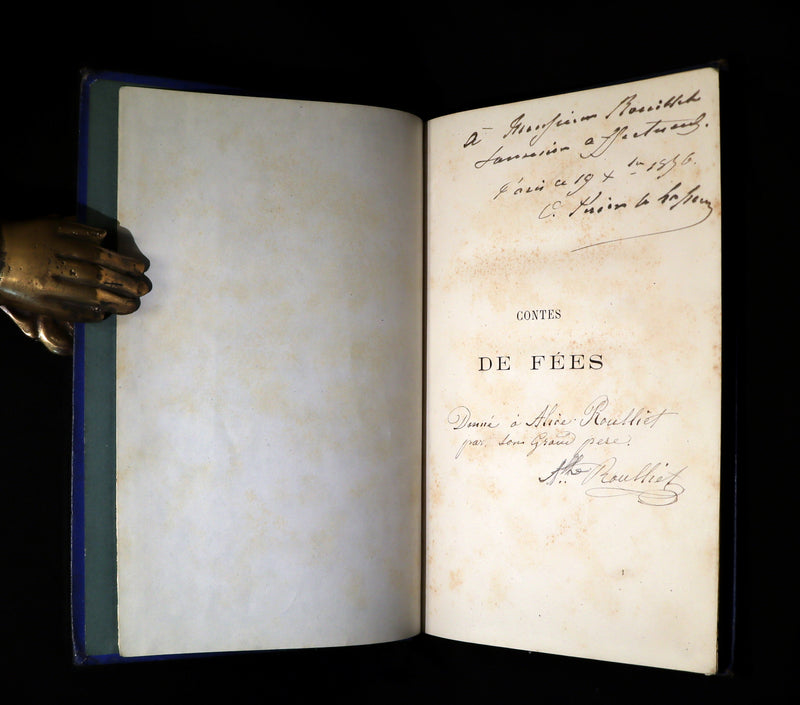 à Monsieur Rouilliet
Souvenir affectueux.
Paris ce 19 xbre 1856.
C.
CONTES
DE FÉES
Donné à Alice Roulliet
par son Grand père.
Roulliet